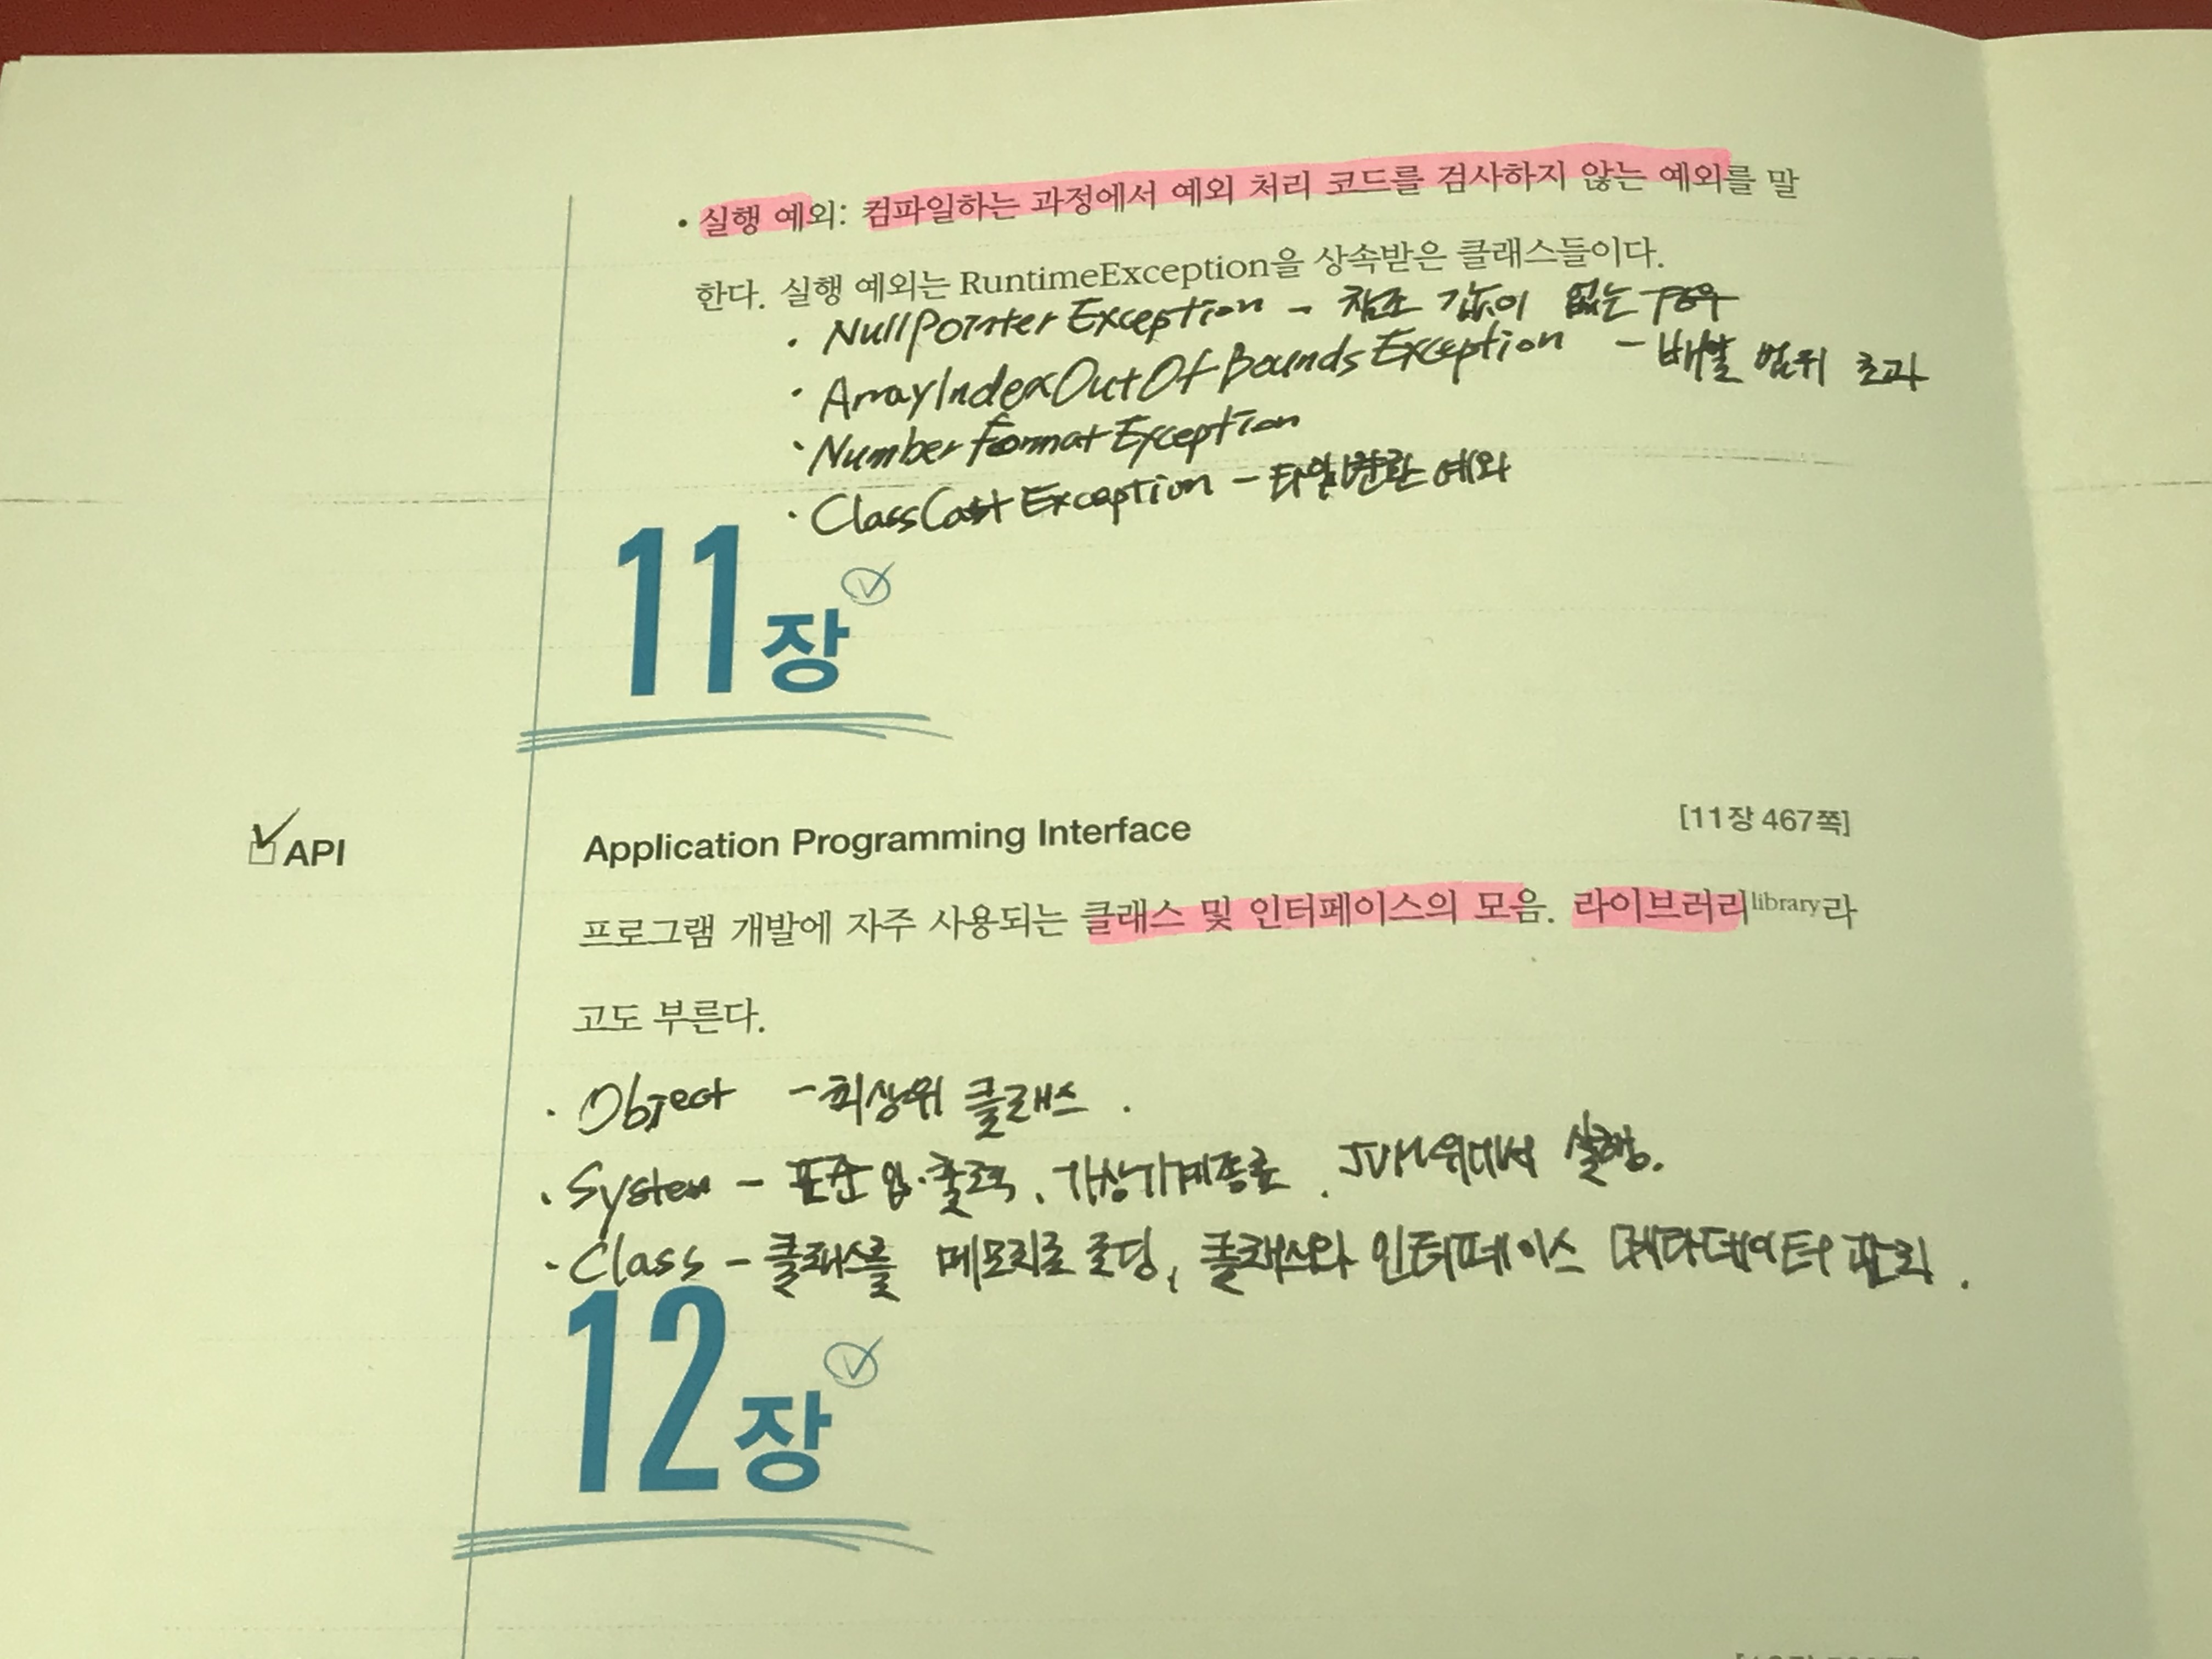 • 실행 예외: 컴파일하는 과정에서 예외 처리 코드를 검사하지 않는 예외를 말
한다. 실행 예외는 RuntimeException을 상속받은 클래스들이다.
· NullPointerException - 참조 값이 없는 경우
· ArrayIndexOutOfBoundsException - 배열 범위 초과
· NumberFormatException
· ClassCastException - 타입변환 예외
11장
API
Application Programming Interface
[11장 467쪽]
프로그램 개발에 자주 사용되는 클래스 및 인터페이스의 모음. 라이브러리library라
고도 부른다.
· Object - 최상위 클래스.
· System - 표준 입·출력, 가상기계종료. JVM위에서 실행.
· Class - 클래스를 메모리로 로딩, 클래스와 인터페이스 메타데이터 관리.
12장